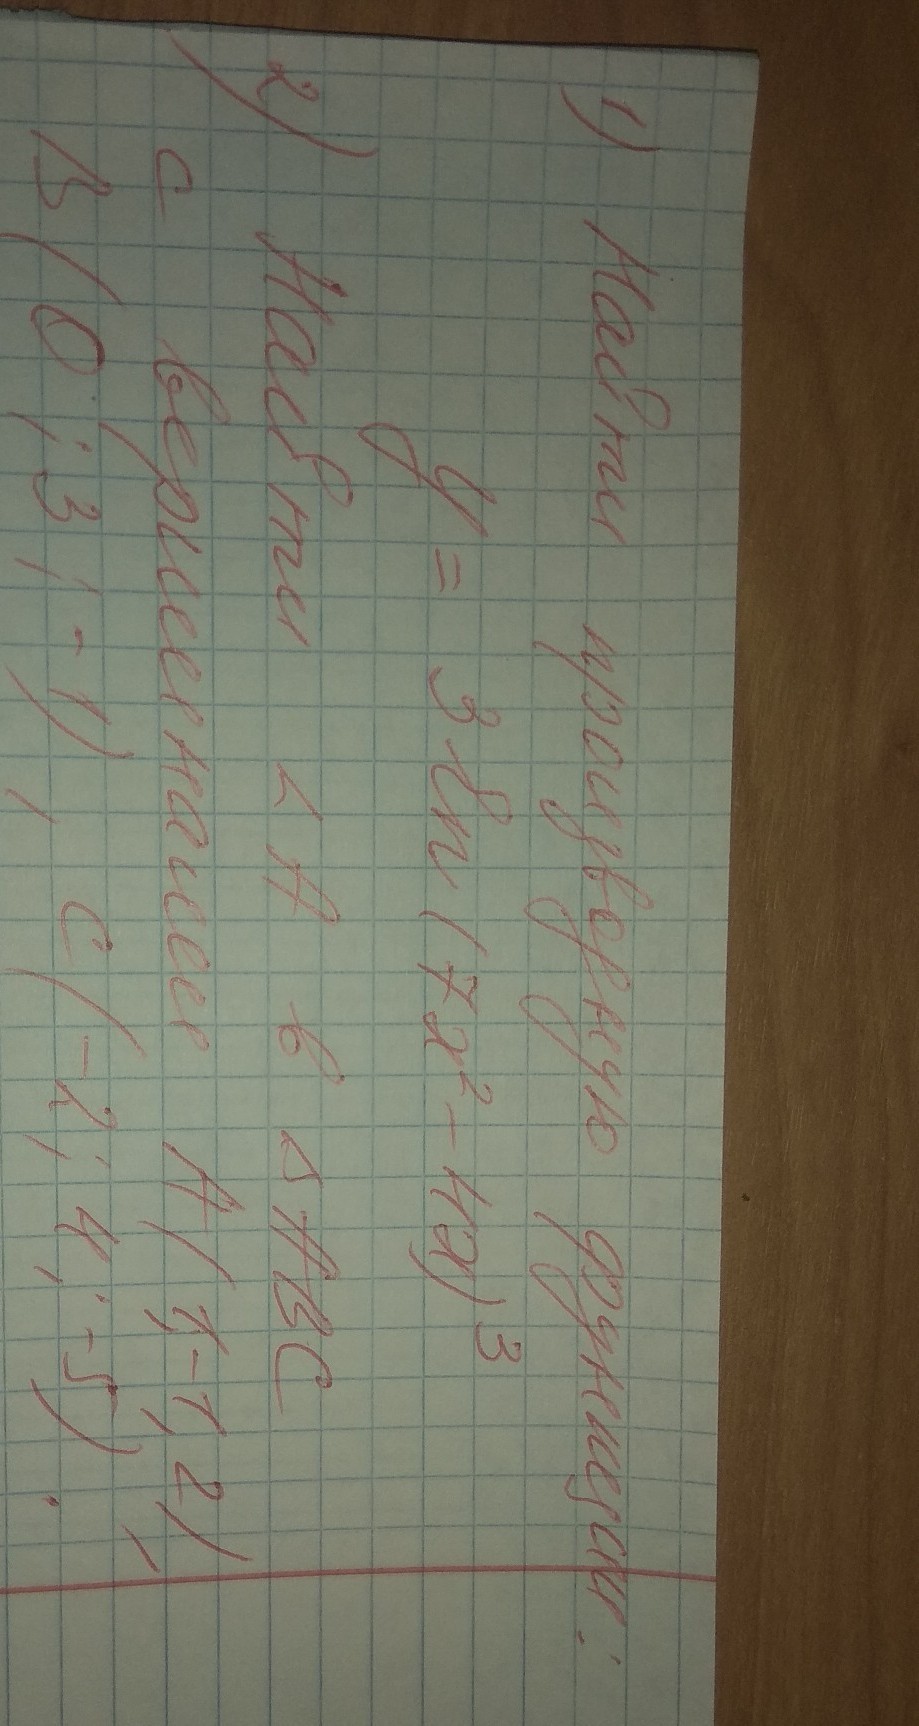 1) Найти производную функции:
y = 3 sin (7x² - 4x)³
2) Найти ∠A в △ABC
с вершинами A(1,-1,2),
B(0;3;-1), C(-2;4;-5).